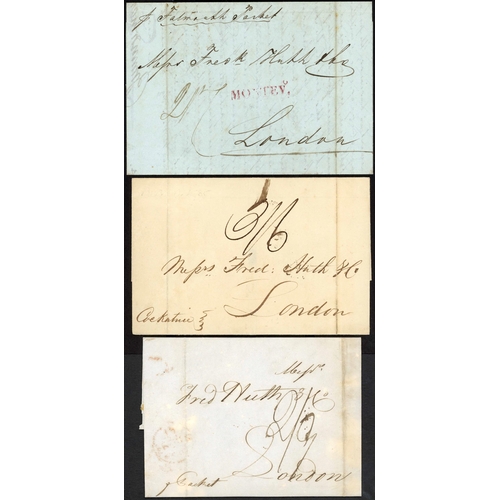 p Falmouth Packet
Messrs Fredk Huth & Co
MONTEVº.
London
Messrs Fred: Huth & Co
Cockatrice
London
Messrs
Fred Huth & Co
London
p Packet